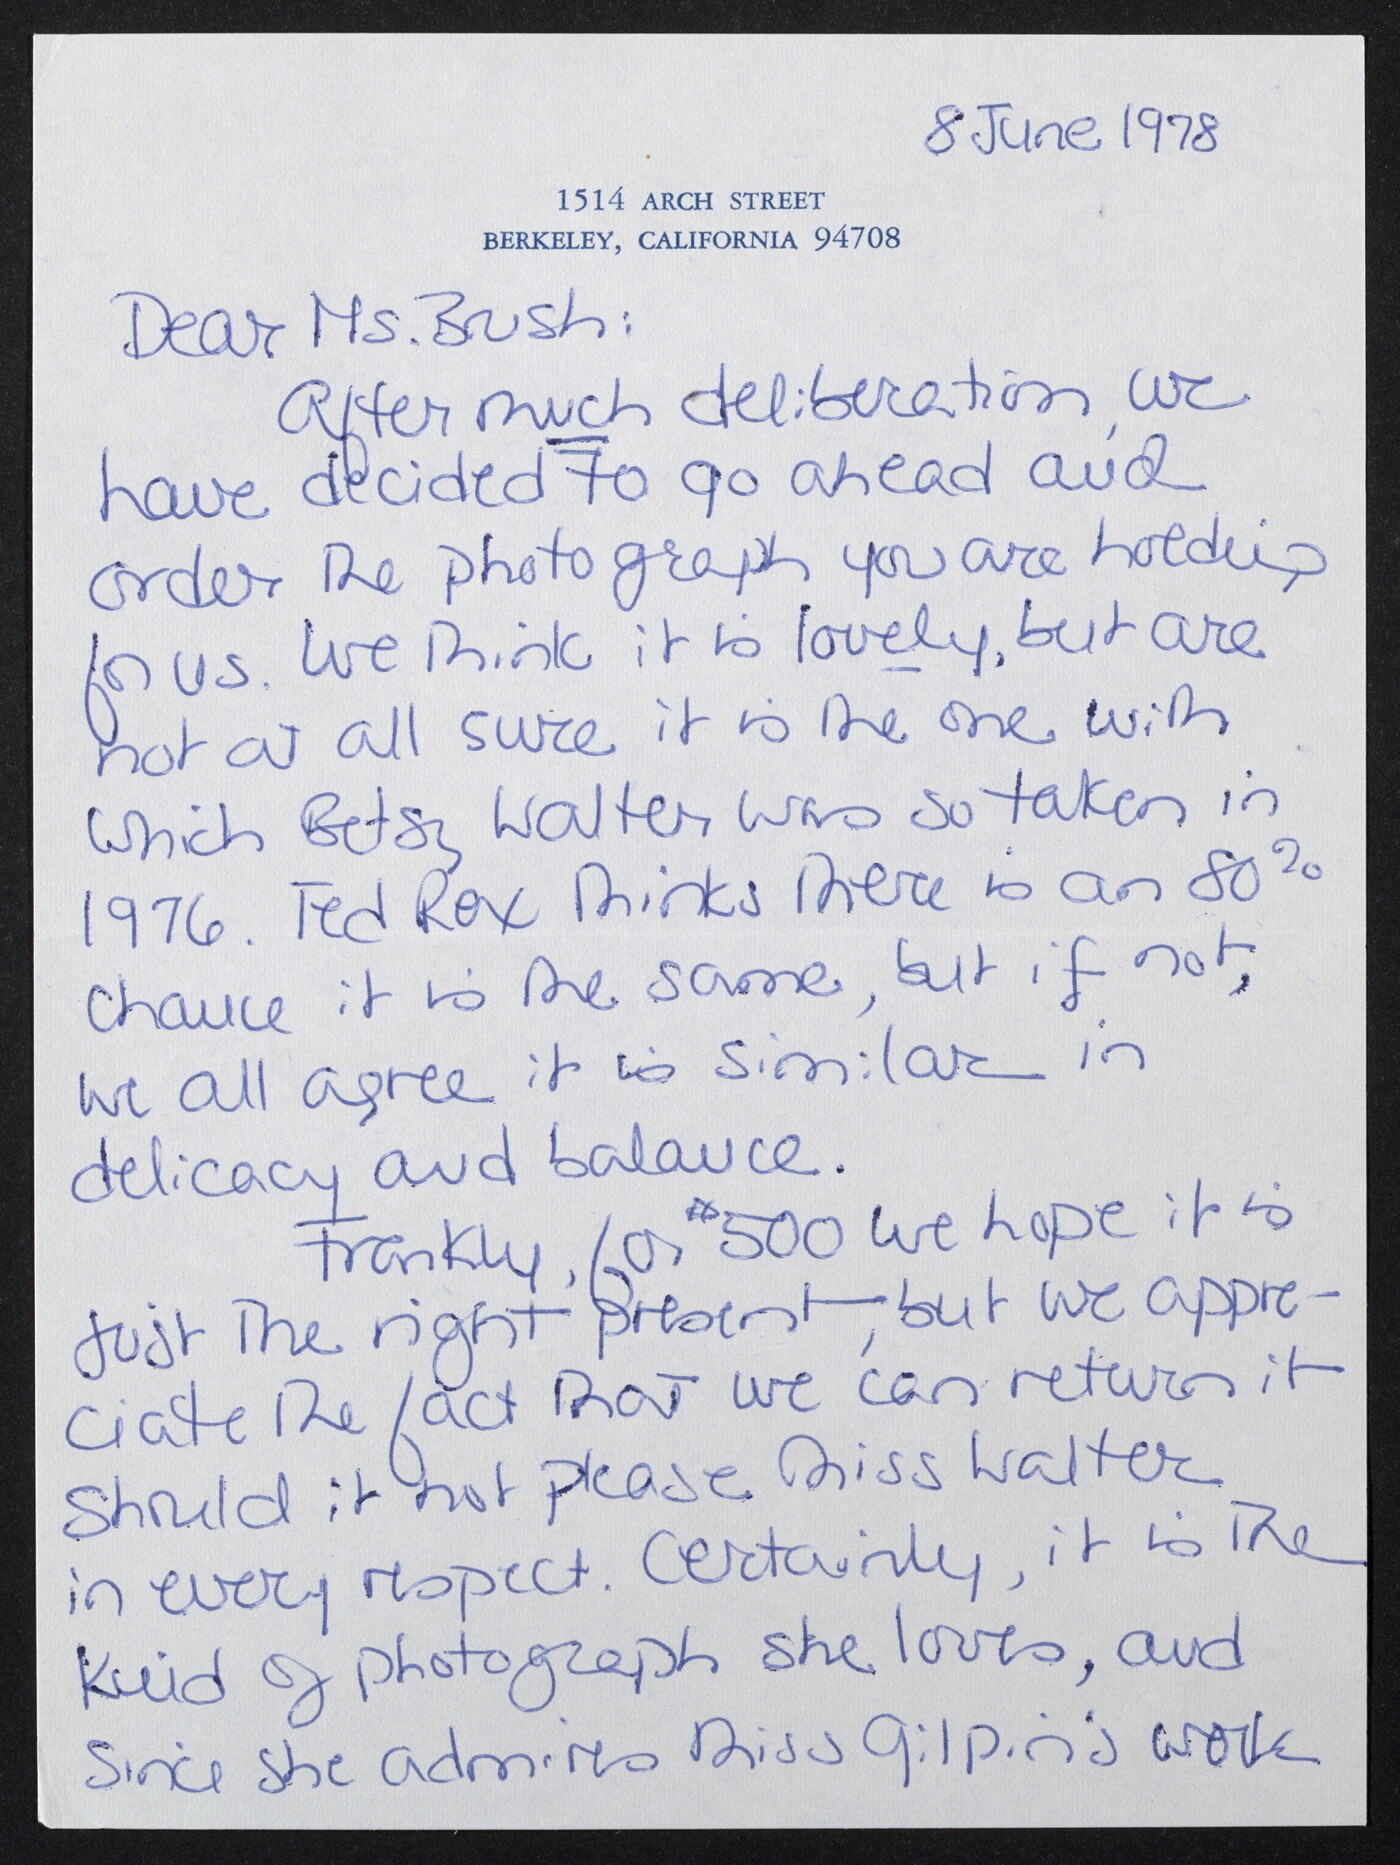 8 June 1978
1514 ARCH STREET
BERKELEY, CALIFORNIA 94708
Dear Ms. Bush:
After much deliberation, we
have decided to go ahead and
order the photograph you are holding
for us. We think it is lovely, but are
not at all sure it is the one with
which Betsy Walter was so taken in
1976. Ted Rex thinks there is an 80%
chance it is the same, but if not,
we all agree it is similar in
delicacy and balance.
Frankly, for $500 we hope it is
just the right present, but we appre-
ciate the fact that we can return it
should it not please Miss Walter
in every respect. Certainly, it is the
kind of photograph she loves, and
since she admires Miss Gilpin's work